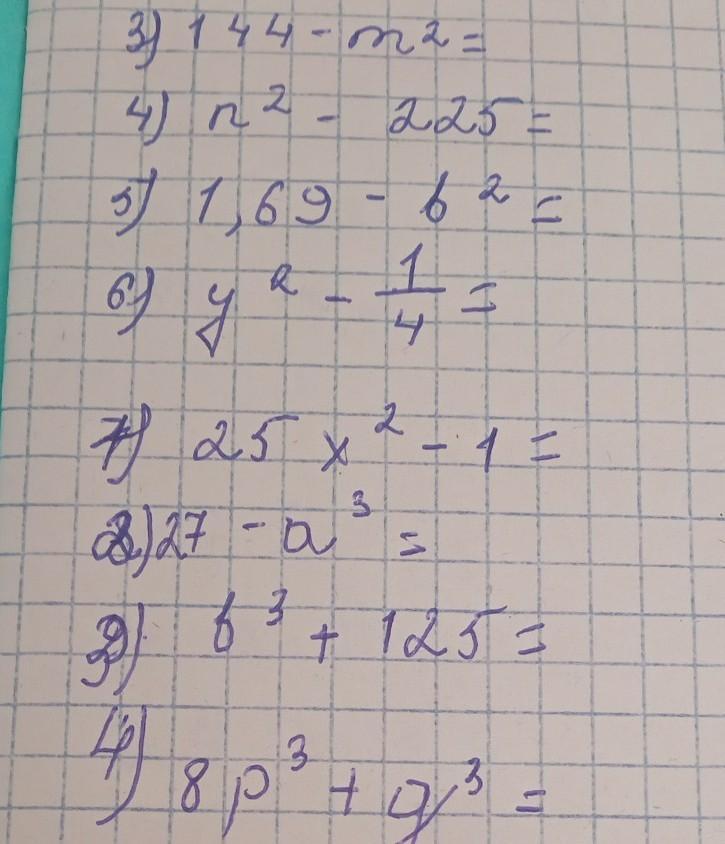 3) 144 - m² =
4) n² - 225 =
5) 1,69 - b² =
6) y² - 1/4 =
7) 25x² - 1 =
27 - a³ =
b³ + 125 =
4) 8p³ + q³ =